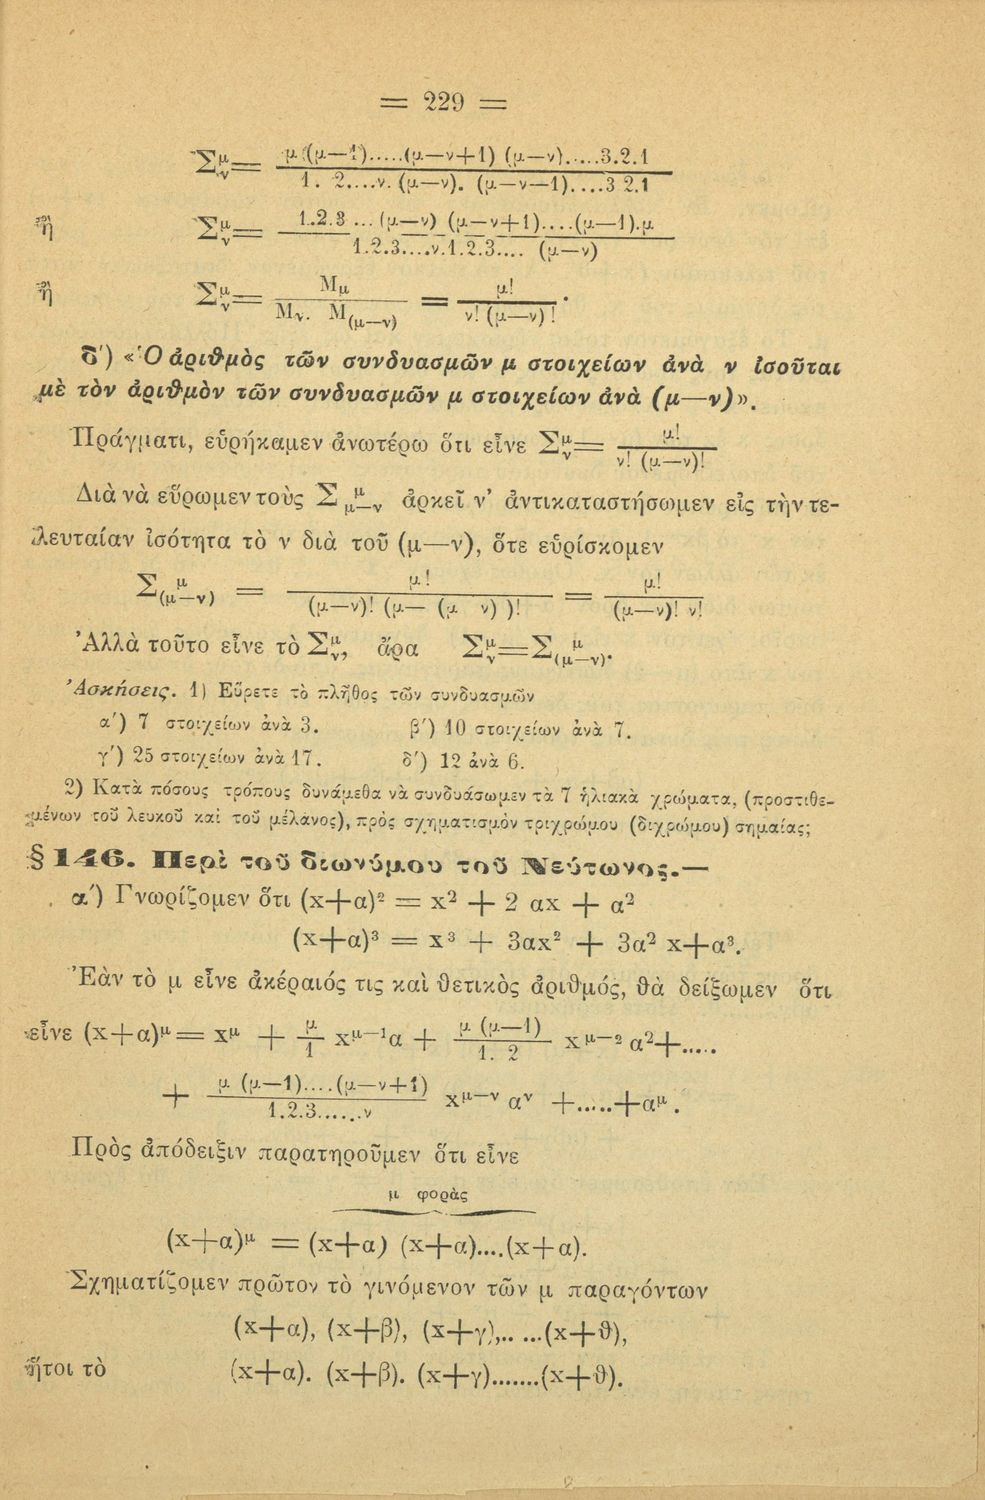 = 229 =
Σ^μ_ν = μ (μ—1).....(μ—ν+1) (μ—ν).....3.2.1 / 1. 2....ν. (μ—ν). (μ—ν—1)....3 2.1
ἢ Σ^μ_ν = 1.2.3 ... (μ—ν) (μ—ν+1)....(μ—1).μ / 1.2.3....ν.1.2.3.... (μ—ν)
ἢ Σ^μ_ν = Μ_μ / Μ_ν. Μ_(μ—ν) = μ! / ν! (μ—ν)! .
δ') «Ὁ ἀριθμὸς τῶν συνδυασμῶν μ στοιχείων ἀνὰ ν ἰσοῦται
μὲ τὸν ἀριθμὸν τῶν συνδυασμῶν μ στοιχείων ἀνὰ (μ—ν)».
Πράγματι, εὑρήκαμεν ἀνωτέρω ὅτι εἶνε Σ^μ_ν = μ! / ν! (μ—ν)!
Διὰ νὰ εὕρωμεν τοὺς Σ^μ_μ—ν ἀρκεῖ ν' ἀντικαταστήσωμεν εἰς τὴν τε-
λευταίαν ἰσότητα τὸ ν διὰ τοῦ (μ—ν), ὅτε εὑρίσκομεν
Σ^μ_(μ—ν) = μ! / (μ—ν)! (μ— (μ ν) )! = μ! / (μ—ν)! ν!
Ἀλλὰ τοῦτο εἶνε τὸ Σ^μ_ν, ἄρα Σ^μ_ν = Σ^μ_(μ—ν).
Ἀσκήσεις. 1) Εὕρετε τὸ πλῆθος τῶν συνδυασμῶν
α') 7 στοιχείων ἀνὰ 3. β') 10 στοιχείων ἀνὰ 7.
γ') 25 στοιχείων ἀνὰ 17. δ') 12 ἀνὰ 6.
2) Κατὰ πόσους τρόπους δυνάμεθα νὰ συνδυάσωμεν τὰ 7 ἡλιακὰ χρώματα, (προστιθε-
μένων τοῦ λευκοῦ καὶ τοῦ μέλανος), πρὸς σχηματισμὸν τριχρώμου (διχρώμου) σημαίας;
§ 146. Περὶ τοῦ διωνύμου τοῦ Νεύτωνος.—
α') Γνωρίζομεν ὅτι (x+α)² = x² + 2 αx + α²
(x+α)³ = x³ + 3αx² + 3α² x+α³.
Ἐὰν τὸ μ εἶνε ἀκέραιός τις καὶ θετικὸς ἀριθμός, θὰ δείξωμεν ὅτι
εἶνε (x+α)^μ = x^μ + μ/1 x^μ—1 α + μ (μ—1) / 1. 2 x^μ—2 α²+.....
+ μ (μ—1)....(μ—ν+1) / 1.2.3......ν x^μ—ν α^ν +.....+α^μ.
Πρὸς ἀπόδειξιν παρατηροῦμεν ὅτι εἶνε
μ φορὰς
(x+α)^μ = (x+α) (x+α)....(x+α).
Σχηματίζομεν πρῶτον τὸ γινόμενον τῶν μ παραγόντων
(x+α), (x+β), (x+γ),.. ...(x+θ),
ἤτοι τὸ (x+α). (x+β). (x+γ).......(x+θ).